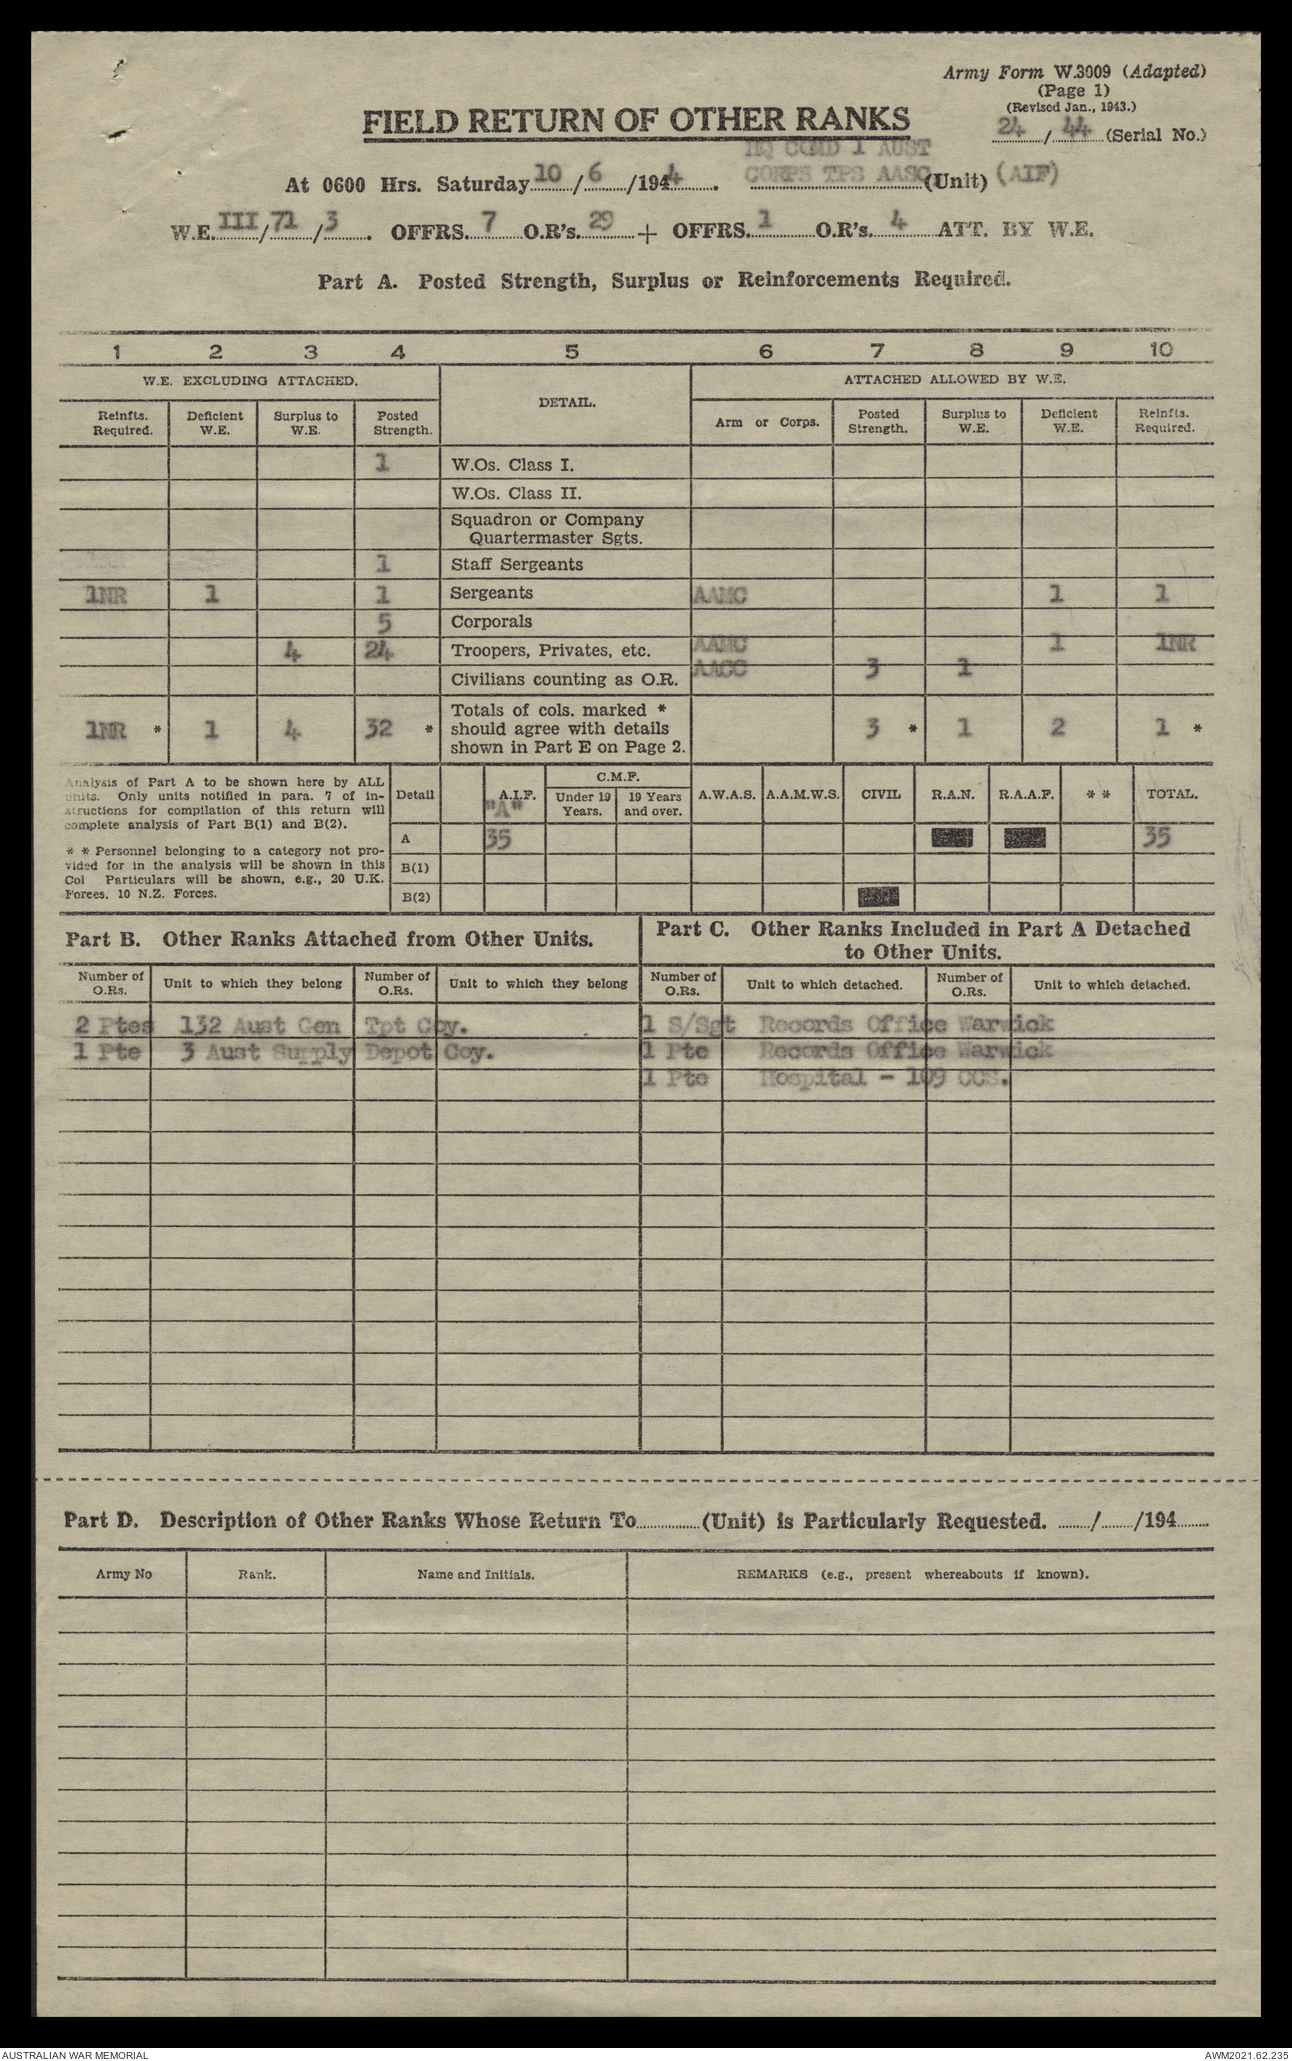 Army Form W.3009 (Adapted)
(Page 1)
(Revised Jan., 1943.)
24 / 44 (Serial No.)
FIELD RETURN OF OTHER RANKS
HQ COMD 1 AUST
At 0600 Hrs. Saturday 10 / 6 /1944. CORPS TPS AASC (Unit) (AIF)
W.E. III / 71 / 3. OFFRS. 7 O.R's. 29 + OFFRS. 1 O.R's. 4 ATT. BY W.E.
Part A. Posted Strength, Surplus or Reinforcements Required.
1 2 3 4 5 6 7 8 9 10
W.E. EXCLUDING ATTACHED. DETAIL. ATTACHED ALLOWED BY W.E.
Reinfts. Required. Deficient W.E. Surplus to W.E. Posted Strength. Arm or Corps. Posted Strength. Surplus to W.E. Deficient W.E. Reinfts. Required.
1 W.Os. Class I.
W.Os. Class II.
Squadron or Company
Quartermaster Sgts.
1 Staff Sergeants
1NR 1 1 Sergeants AAMC 1 1
5 Corporals
4 24 Troopers, Privates, etc. AAMC 1 1NR
Civilians counting as O.R. AACC 3 1
Totals of cols. marked *
1NR * 1 4 32 * should agree with details 3 * 1 2 1 *
shown in Part E on Page 2.
Analysis of Part A to be shown here by ALL
units. Only units notified in para. 7 of in-
structions for compilation of this return will
complete analysis of Part B(1) and B(2).
* * Personnel belonging to a category not pro-
vided for in the analysis will be shown in this
Col Particulars will be shown, e.g., 20 U.K.
Forces, 10 N.Z. Forces.
Detail A.I.F. "A" C.M.F. Under 19 Years. 19 Years and over. A.W.A.S. A.A.M.W.S. CIVIL R.A.N. R.A.A.F. * * TOTAL.
A 35 35
B(1)
B(2)
Part B. Other Ranks Attached from Other Units.
Part C. Other Ranks Included in Part A Detached
to Other Units.
Number of O.Rs. Unit to which they belong Number of O.Rs. Unit to which they belong Number of O.Rs. Unit to which detached. Number of O.Rs. Unit to which detached.
2 Ptes 132 Aust Gen Tpt Coy. 1 S/Sgt Records Office Warwick
1 Pte 3 Aust Supply Depot Coy. 1 Pte Records Office Warwick
1 Pte Hospital - 109 CCS.
Part D. Description of Other Ranks Whose Return To............(Unit) is Particularly Requested. ......./......./194.......
Army No Rank. Name and Initials. REMARKS (e.g., present whereabouts if known).
AUSTRALIAN WAR MEMORIAL AWM2021.62.235